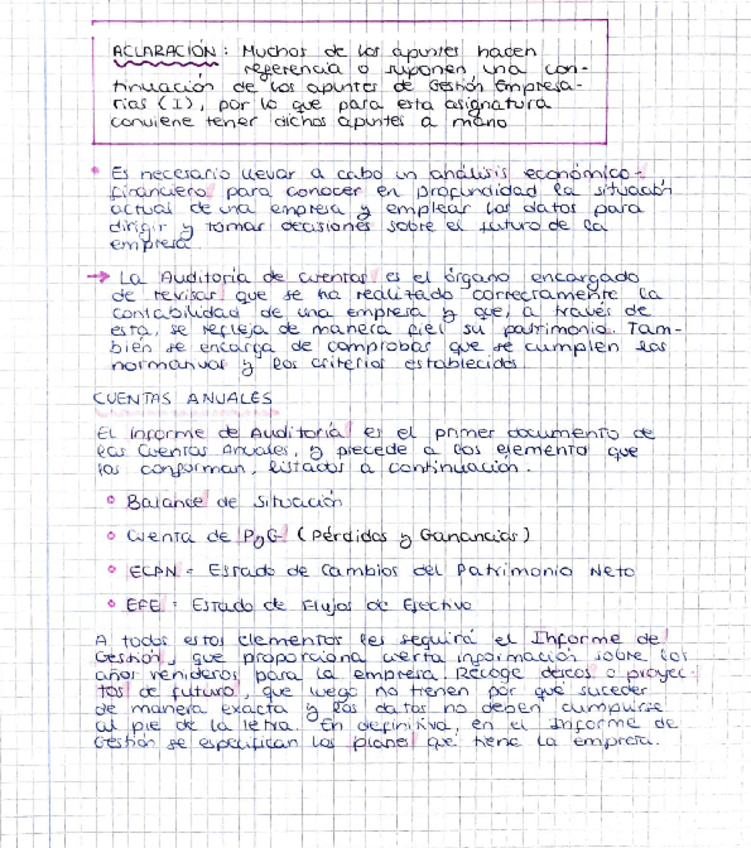 ACLARACIÓN: Muchos de los apuntes hacen
referencia o suponen una con-
tinuación de los apuntes de Gestión Empresa-
rial (I), por lo que para esta asignatura
conviene tener dichos apuntes a mano
• Es necesario llevar a cabo un análisis económico-
financiero para conocer en profundidad la situación
actual de una empresa y emplear los datos para
dirigir y tomar decisiones sobre el futuro de la
empresa.
→ La Auditoría de cuentas es el órgano encargado
de revisar que se ha realizado correctamente la
contabilidad de una empresa y que, a través de
esta, se refleja de manera fiel su patrimonio. Tam-
bién se encarga de comprobar que se cumplen las
normativas y los criterios establecidos
CUENTAS ANUALES
El Informe de Auditoría es el primer documento de
las Cuentas Anuales, y precede a los elemento que
las conforman, listados a continuación.
• Balance de Situación
• Cuenta de PyG (Pérdidas y Ganancias)
• ECPN = Estado de Cambios del Patrimonio Neto
• EFE : Estado de Flujos de Efectivo
A todos estos elementos les seguirá el Informe de
Gestión, que proporciona cierta información sobre los
años venideros para la empresa. Recoge deseos o proyec-
tos de futuro, que luego no tienen por qué suceder
de manera exacta y los datos no deben cumplirse
al pie de la letra. En definitiva, en el Informe de
Gestión se especifican los planes que tiene la empresa.